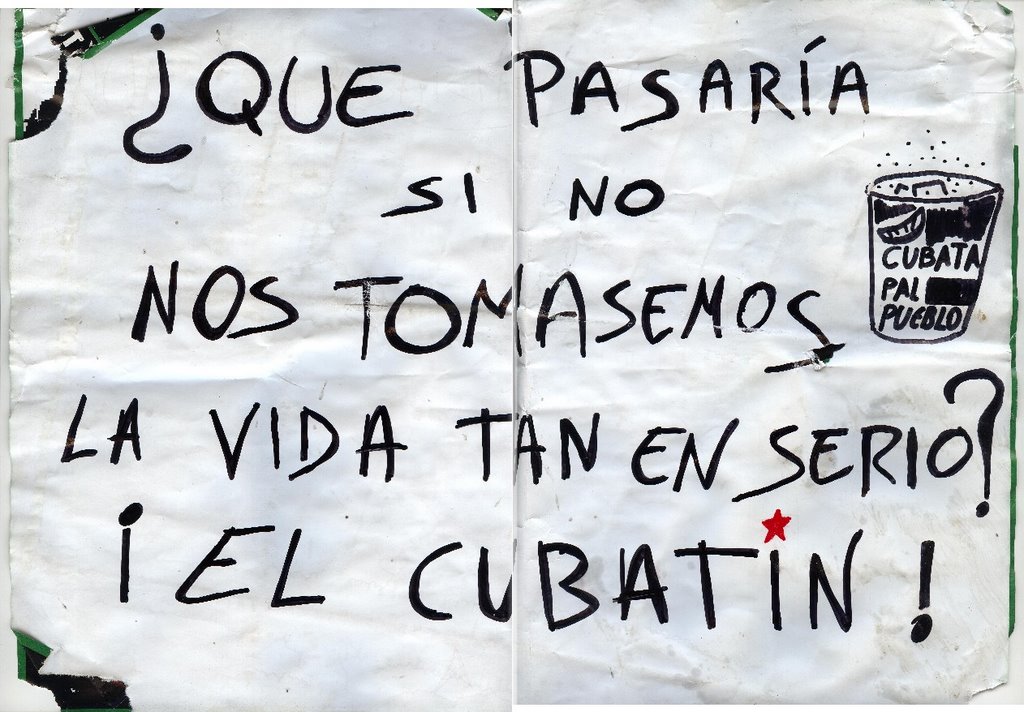 ¿QUE PASARÍA
SI NO
NOS TOMASEMOS
LA VIDA TAN EN SERIO?
¡EL CUBATIN!
CUBATA
PAL
PUEBLO